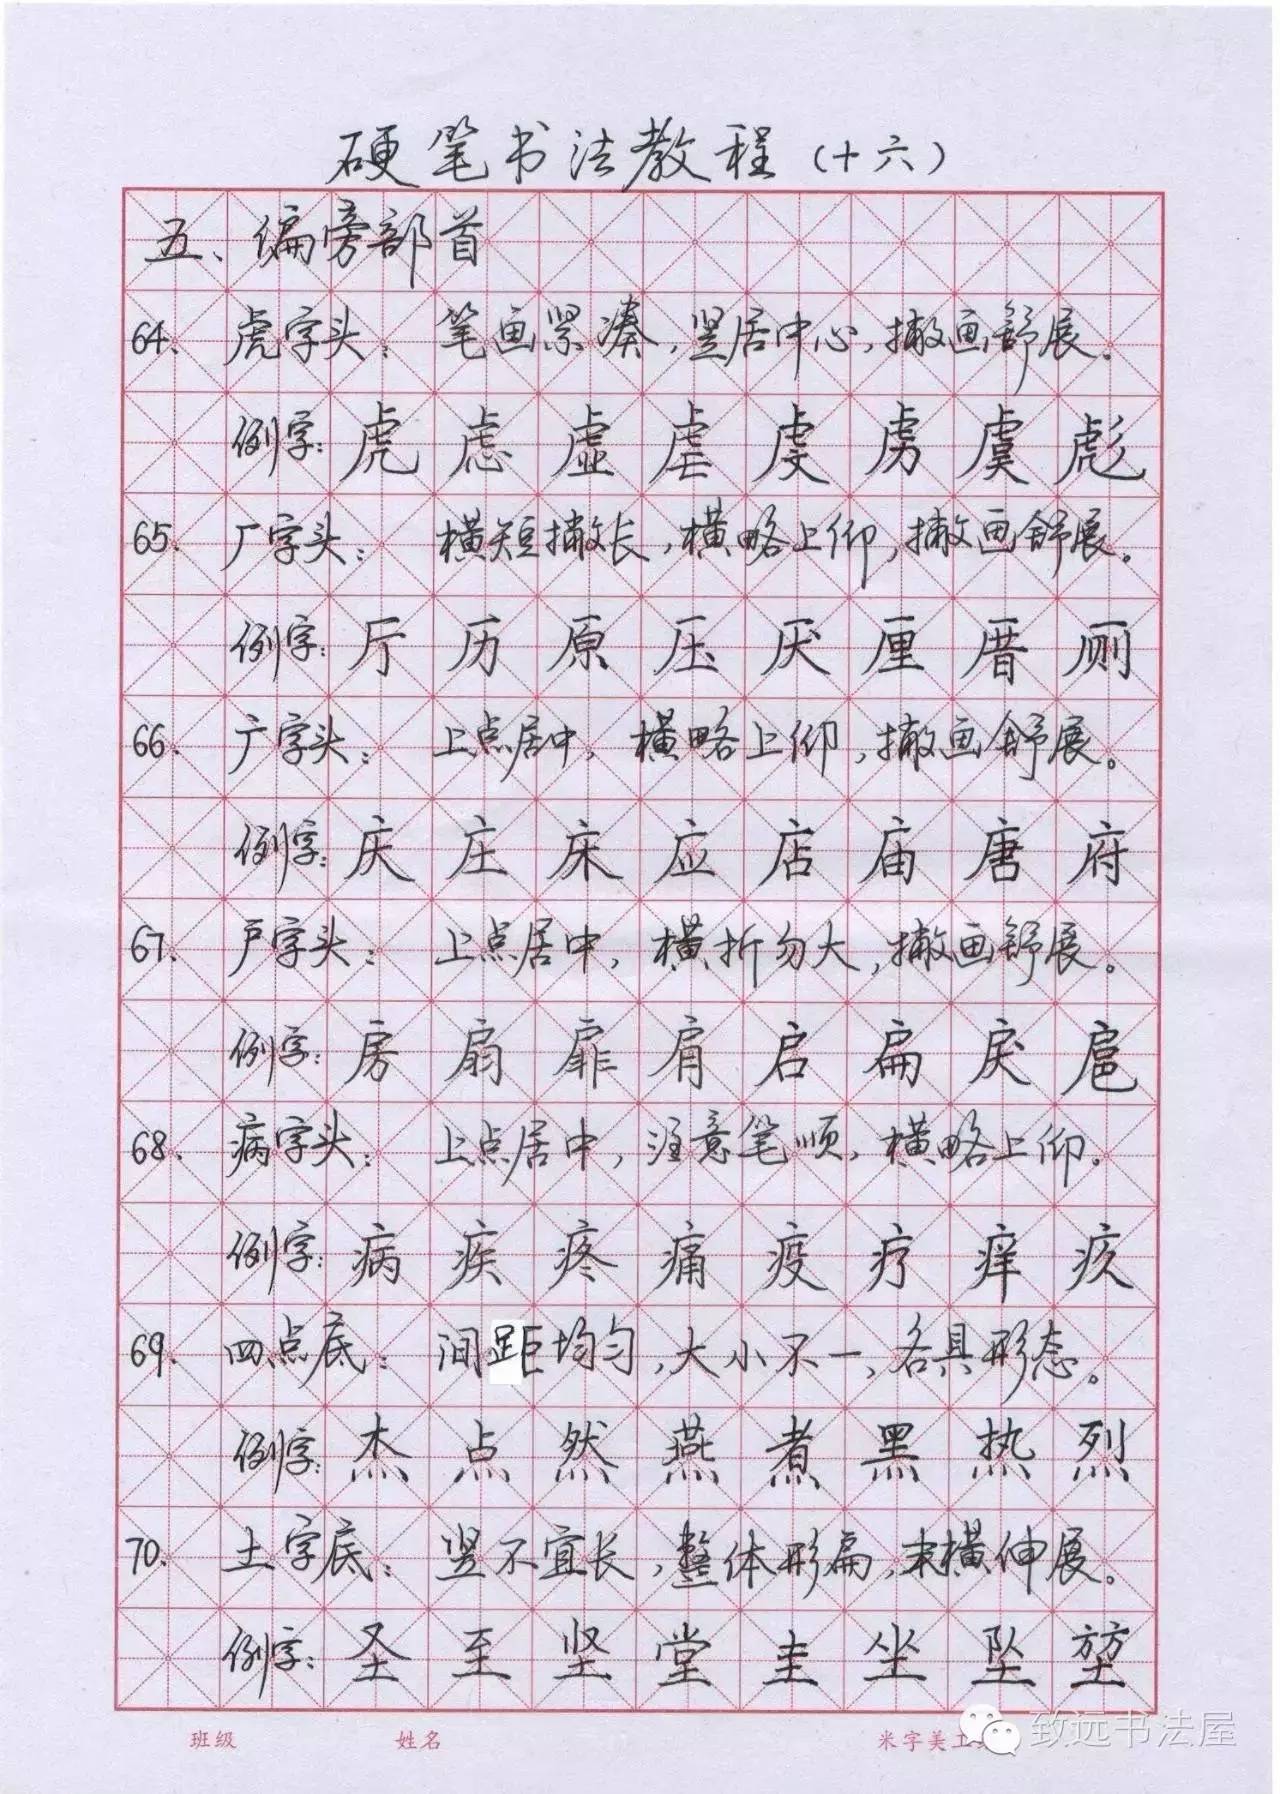 硬笔书法教程（十六）
五、偏旁部首
64. 虎字头：笔画紧凑，竖居中心，撇画舒展。
例字：虎 虑 虚 虐 虔 虏 虞 彪
65. 厂字头：横短撇长，横略上仰，撇画舒展。
例字：厅 历 原 压 厌 厘 厝 厕
66. 广字头：上点居中，横略上仰，撇画舒展。
例字：庆 庄 床 应 店 庙 唐 府
67. 户字头：上点居中，横折勿大，撇画舒展。
例字：房 扇 扉 肩 启 扁 戾 扈
68. 病字头：上点居中，注意笔顺，横略上仰。
例字：病 疾 疼 痛 疫 疗 痒 疚
69. 四点底：间距均匀，大小不一，各具形态。
例字：杰 点 然 燕 煮 黑 热 烈
70. 土字底：竖不宜长，整体形扁，末横伸展。
例字：圣 至 坚 堂 圭 坐 坠 堃
班级 姓名 米字美工
致远书法屋